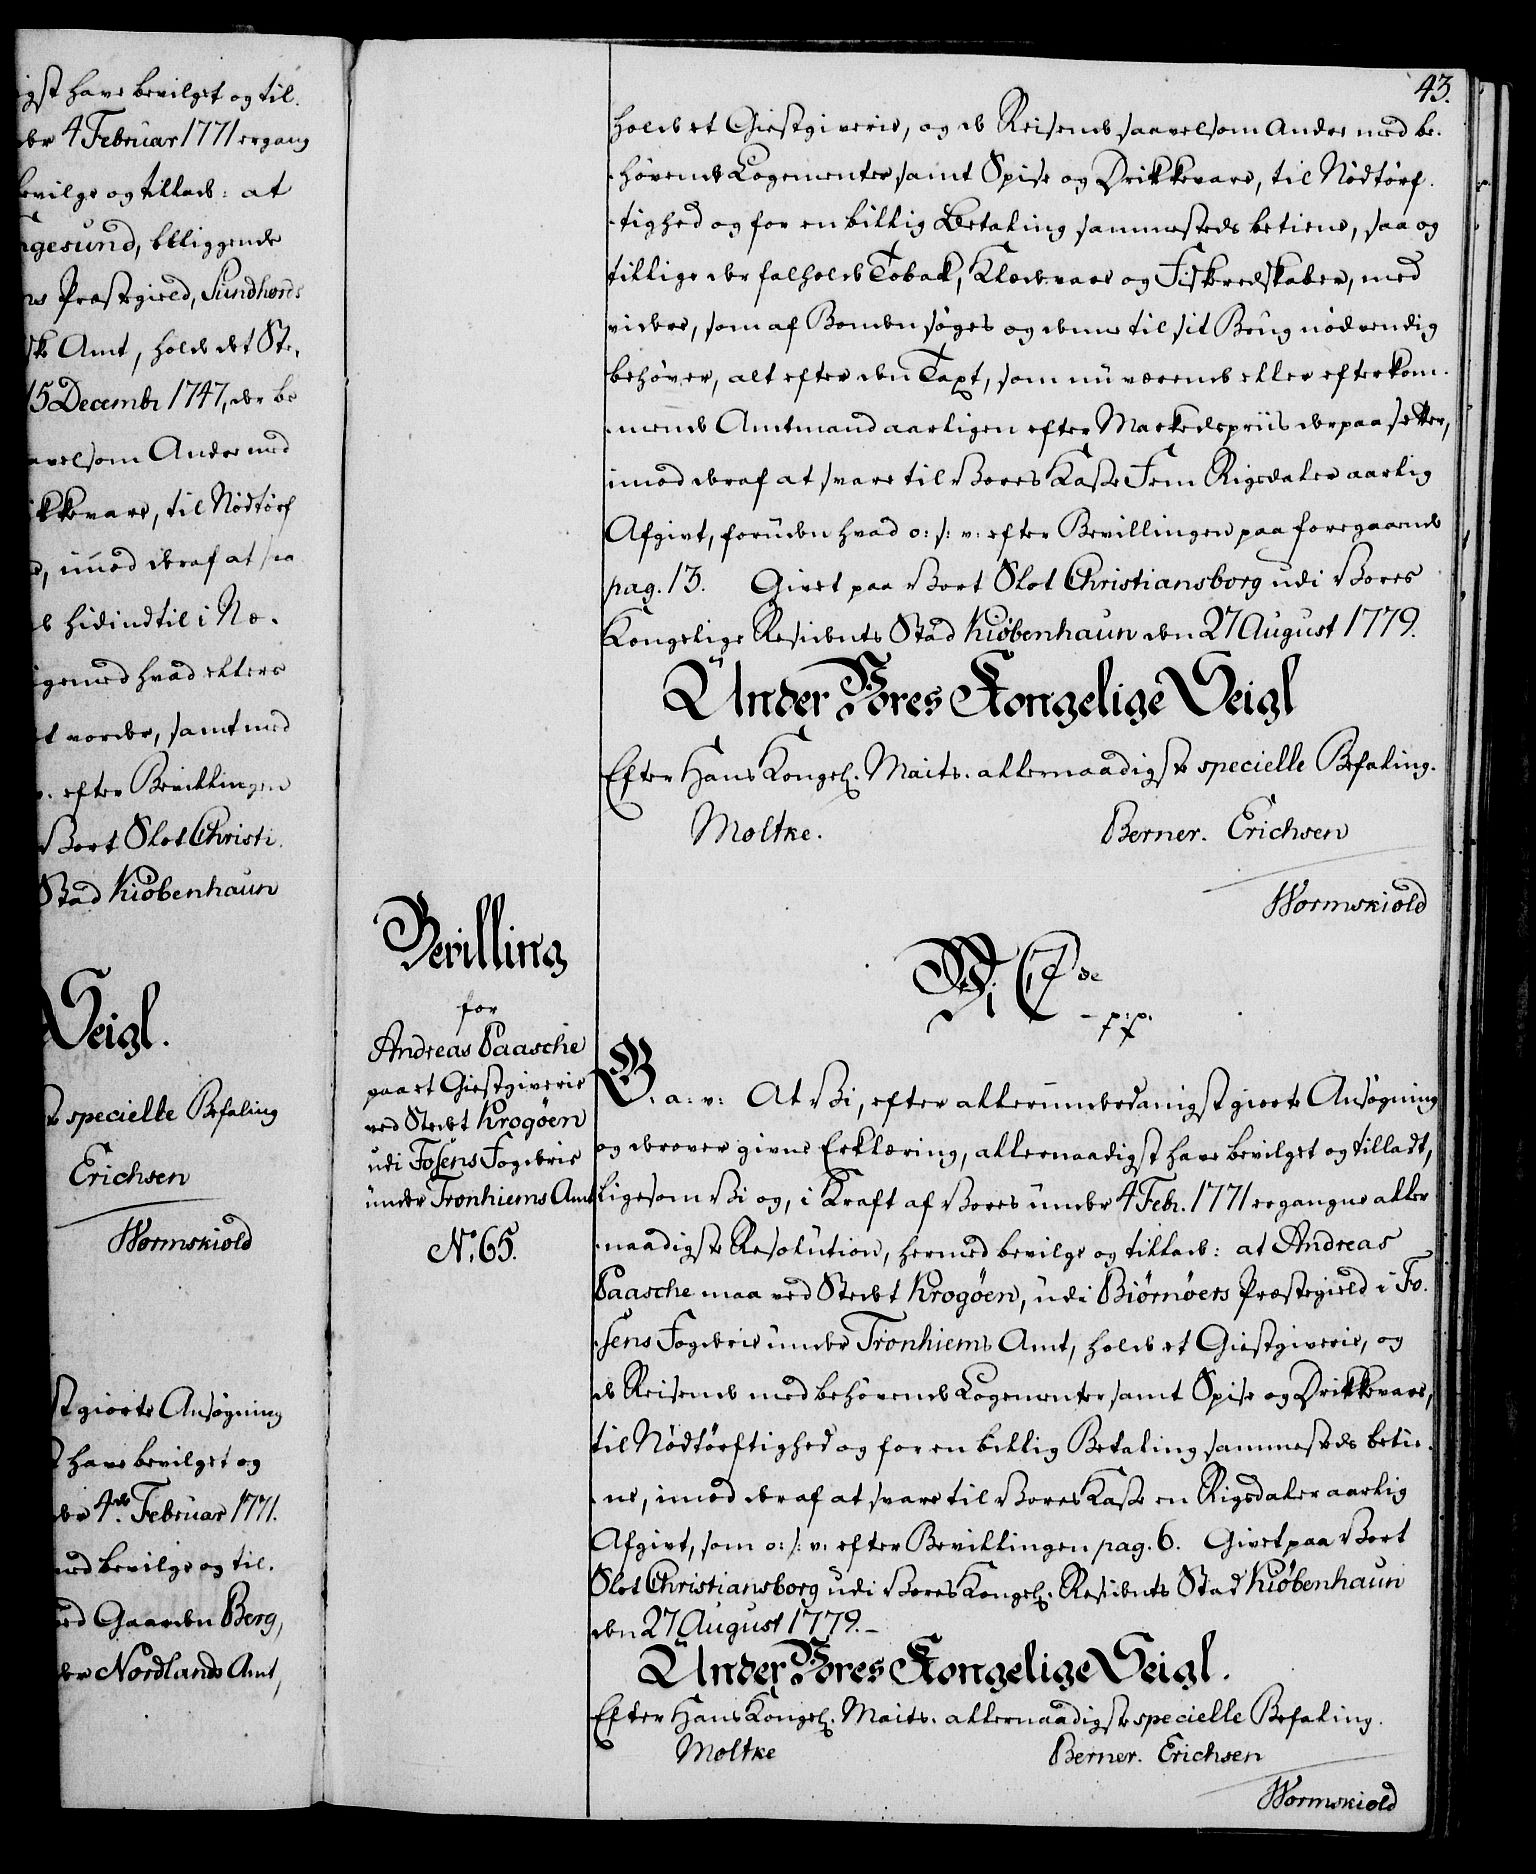 igst have bevilget og til-
der 4 Februar 1771 ergang
bevilge og tillade: at
gesund, beliggende
ns Præstegield, Sundhords
ske Amt, holde det Ste-
15 Decembr 1747, der be
avelsom Andre med
ikkevare, til Nødtørf
e, imod deraf at sva
de hidindtil i Næ-
igemed hvad ellers
et vorder, samt med
v: efter Bevillingen
Vort Slot Christi-
Stad Kiøbenhaun
Seigl.
e specielle Befaling
Erichsen
Wormskiold
st giorte Ansøgning
t have bevilget og
der 4de Februar 1771.
med bevilge og til-
ved Gaarden Berg,
der Nordlands Amt,
43.
holde et Giestgiverie, og de Reisende saavelsom Andre med be-
-høvende Logementer samt Spise og Drikkevare, til Nødtørf-
-tighed og for en billig Betaling sammesteds betiene, saa og
tillige der falholde Tobak, Kledevare og Fiskeredskaber, med
videre, som af Bonden søges og denne til sit Brug nødvendig
behøver, alt efter den Taxt, som nu værende eller efterkom-
-mende Amtmand aarligen efter Markedspriis derpaa sætter,
imod deraf at svare til Vores Kasse Fem Rigsdaler aarlig
Afgivt, foruden hvad o: s: v: efter Bevillingen paa foregaaende
pag. 13. Givet paa Vort Slot Christiansborg udi Vores
Kongelige Residents Stad Kiøbenhaun den 27 August 1779.
Under Vores Kongelige Seigl
Efter Hans Kongel. Maits. allernaadigste specielle Befaling.
Moltke. Berner. Erichsen
Wormskiold
Bevilling
for
Andreas Paasche
paa et Giestgiverie
ved Stedet Krogøen
udi Fosens Fogderie
under Tronhiems Amt
No. 65.
Wi C 7de
p. p.
G. a: v: At Vi, efter allerunderdanigst giorte Ansøgning
og derover givne Erklæring, allernaadigst have bevilget og tilladt,
ligesom Vi og, i Kraft af Vores under 4 Febr. 1771 ergangne aller
-naadigste Resolution, hermed bevilge og tillade: at Andreas
Paasche maa ved Stedet Krogøen, udi Biørnøers Præstegield i Fo-
-sens Fogderie under Tronhiems Amt, holde et Giestgiverie, og
de Reisende med behøvende Logementer samt Spise og Drikkevare,
til Nødtørftighed og for en billig Betaling sammesteds betie-
-ne, imod deraf at svare til Vores Kasse en Rigsdaler aarlig
Afgivt, som o: s: v: efter Bevillingen pag. 6. Givet paa Vort
Slot Christiansborg udi Vores Kongel. Residents Stad Kiøbenhaun
den 27 August 1779.
Under Vores Kongelige Seigl.
Efter Hans Kongel. Maits. allernaadigste specielle Befaling.
Moltke Berner. Erichsen
Wormskiold